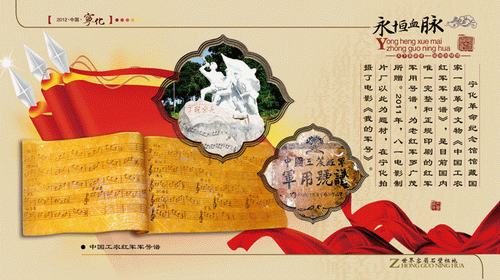 2012·中国·宁化
永恒血脉
Yong heng xue mai
zhong guo ning hua
宁化革命纪念馆馆藏国
家一级革命文物《中国工农
红军军号谱》，是目前国内
唯一完整和正规印刷的红军
军用号谱，为老红军罗广茂
所赠。2011年，八一电影制
片厂以此为题材，在宁化拍
摄了电影《我的军号》。
軍用號譜
中国工农红军军号谱
世界 石壁祖地
ZHONG GUO NING HUA